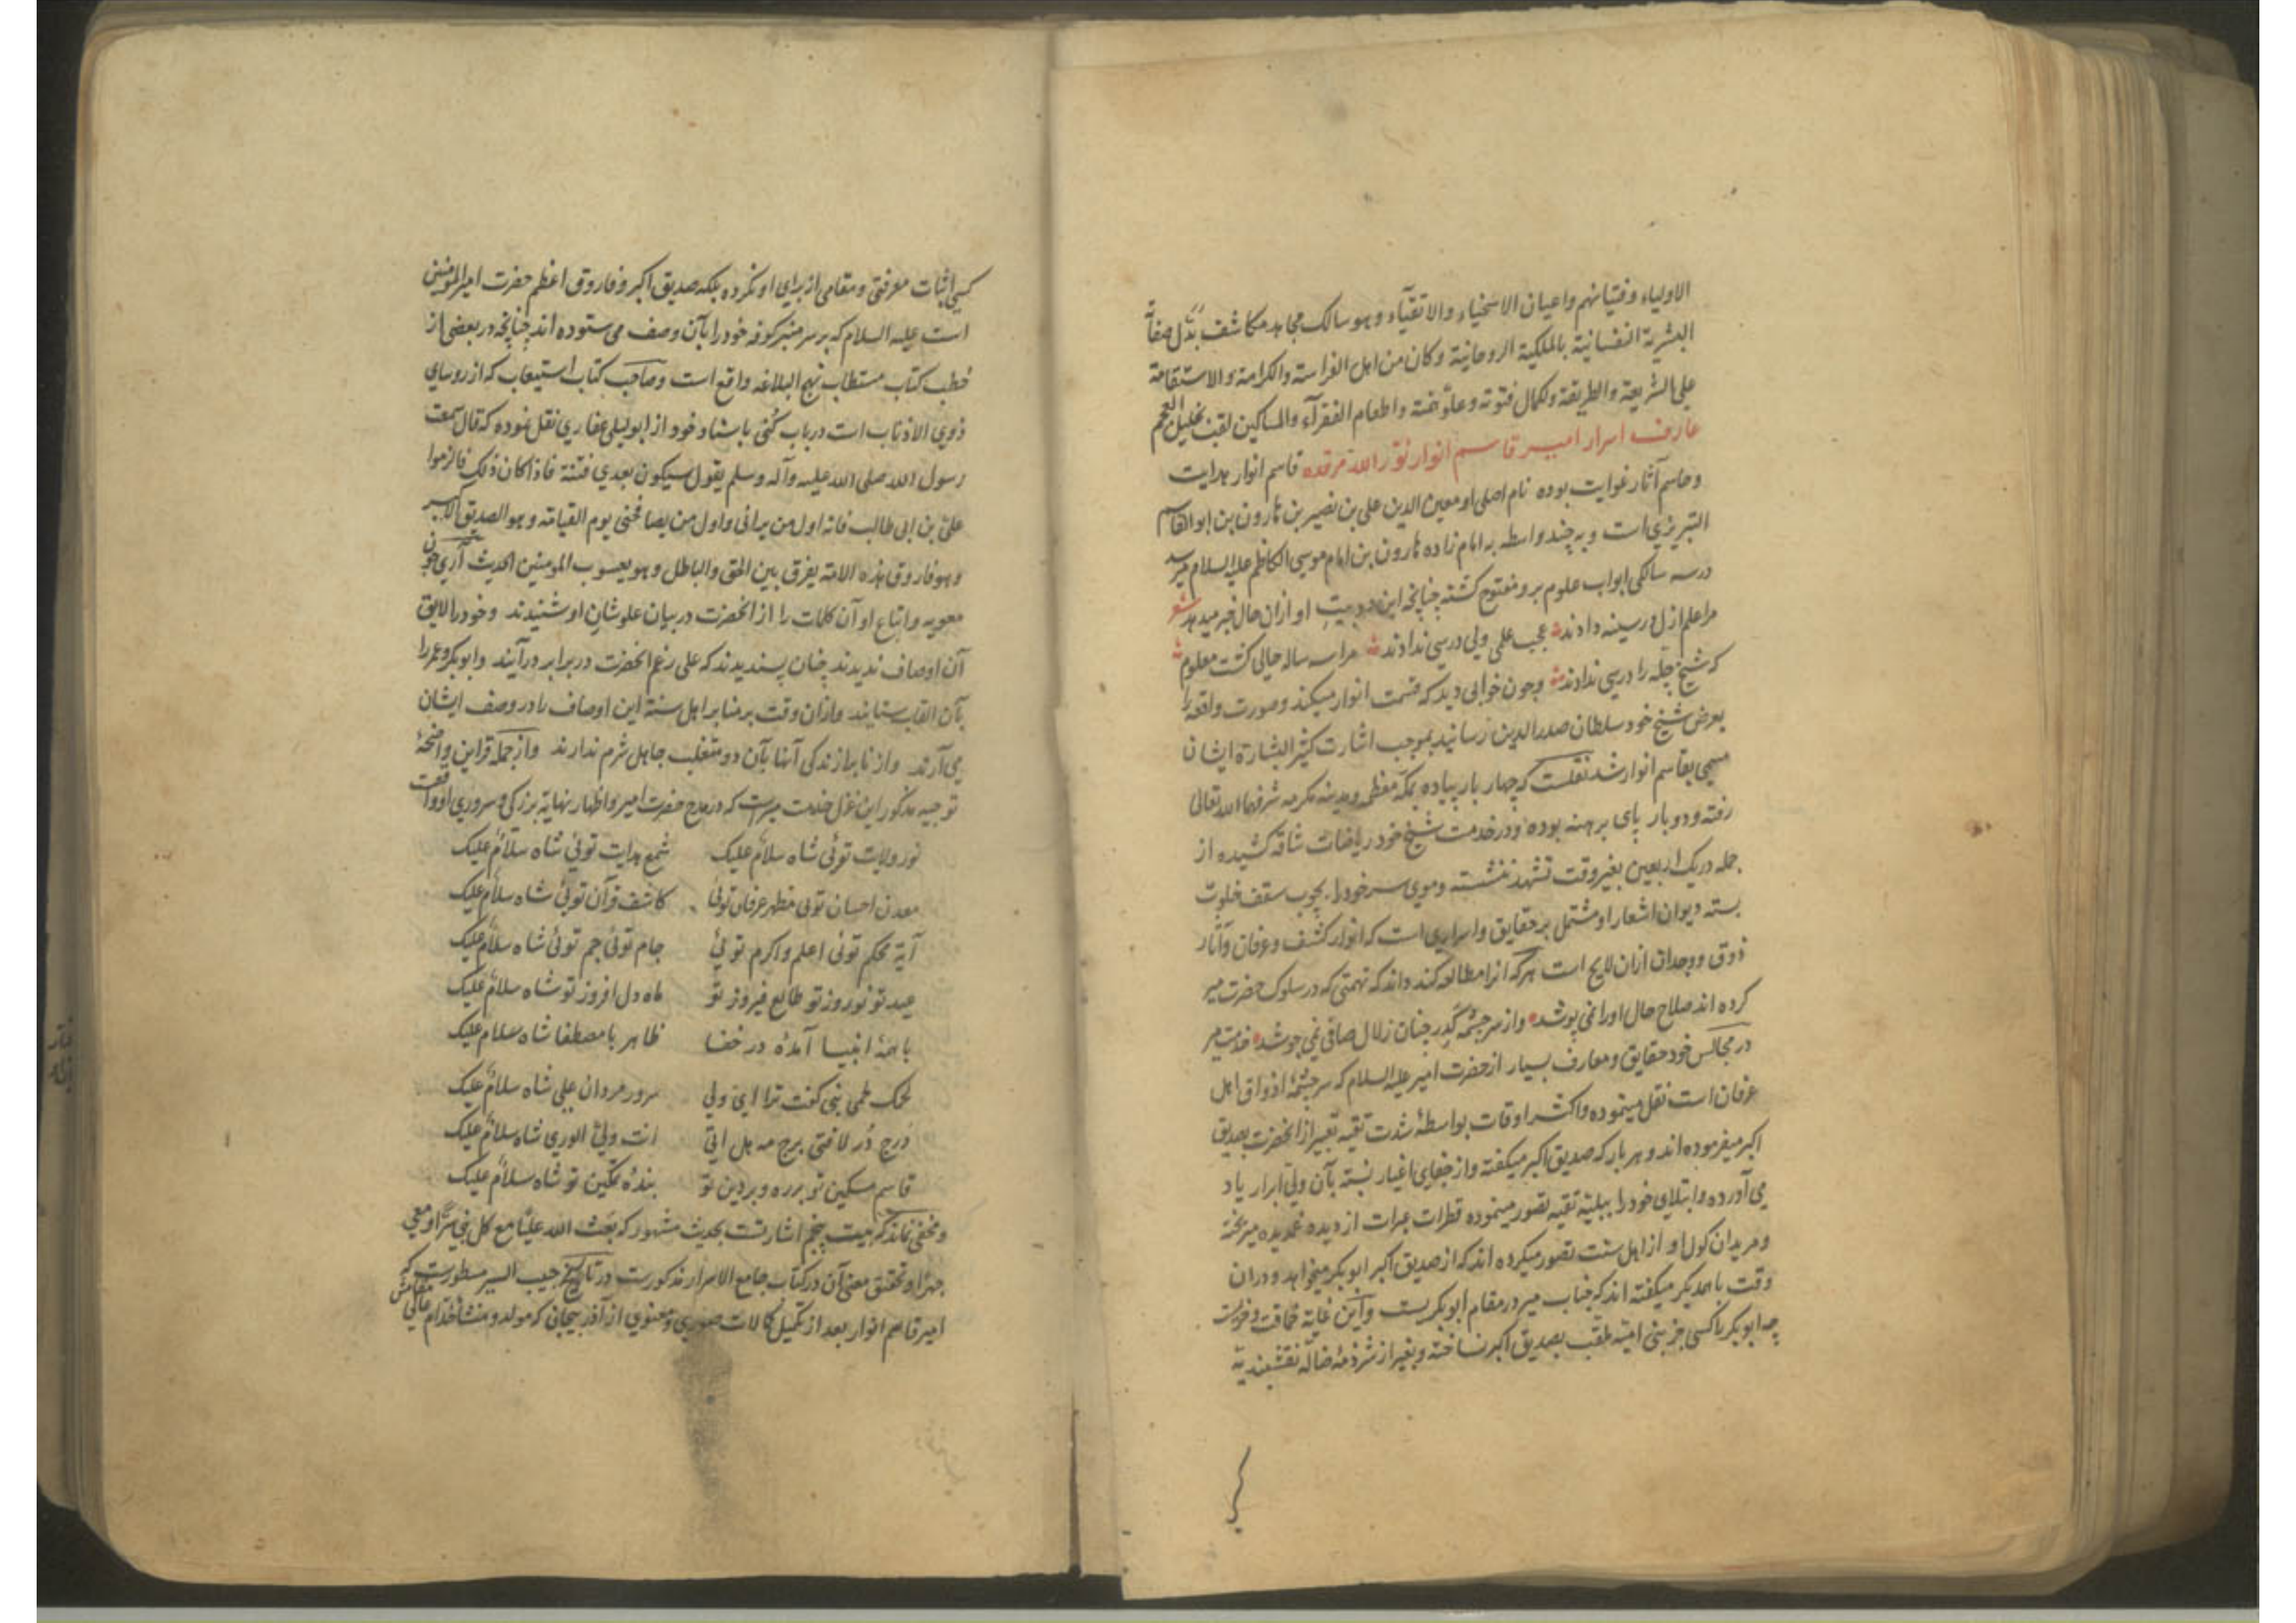 الاولیاء وفتیانهم واعیان الاسخیاء والاتقیآء وهو سالک مجاهد مکاشف بدّل صفاة
البشریة النفسانیة بالملکیة الروحانیة وکان من اهل الفراسة والکرامة والاستقامة
علی الشریعة والطریقة ولکمال فتوته وعلو همته واطعام الفقرآء والمساکین لقب بخلیل العجم
عارف اسرار امیر قاسم انوار نوّر الله مرقده قاسم انوار هدایت
وحاسم آثار غوایت بوده نام اصلی او معین الدین علی بن نصیر بن هارون بن ابو القاسم
التبریزی است و به چند واسطه به امام زاده هارون بن امام موسی الکاظم علیه السلام میرسد
در سه سالکی ابواب علوم برو مفتوح کشته چنانچه این دو بیت او ازان حال خبر میدهد شعر
مرا علم ازل در سینه دادند عجب علمی ولی درسی ندادند مرا سه ساله حالی کشت معلوم
که شیخ چلّه را درسی ندادند وچون خوابی دید که قسمت انوار میکند وصورت واقعه را
بعرض شیخ خود سلطان صدرالدین رسانید بموجب اشارت کثیر البشارة ایشان
مسمی بقاسم انوار شد نقلست که چهار بار پیاده بمکّه معظمه ومدینه مکرمه شرفهما الله تعالی
رفته ودو بار پای برهنه بوده ودر خدمت شیخ خود ریاضات شاقه کشیده از
جمله در یک اربعین بغیر وقت تشهد ننشسته وموی سر خود را بچوب سقف خلوت
بسته دیوان اشعار او مشتمل بر حقایق واسراری است که انوار کشف وعرفان وآثار
ذوق ووجدان ازان لایح است هر که انرا مطالعه کند داند که تهمتی که در سلوک حضرت میر
کرده اند صلاح حال اورا نمی پوشد واز سرچشمه کدر چنان زلال صافی نمی جوشد خدمت میر
در مجالس خود حقایق ومعارف بسیار از حضرت امیر علیه السلام که سرچشمهٔ اذواق اهل
عرفان است نقل مینموده واکثر اوقات بواسطهٔ شدت تقیه تعبیر از انحضرت بصدیق
اکبر میفرموده اند وهر بار که صدیق اکبر میکفته واز جفای اغیار نسبته بآن ولی ابرار یاد
می آورده وابتلای خود را ببلیّه تقیه تصور مینموده قطرات عبرات از دیده غمدیده میریخته
ومریدان کول او از اهل سنت تصور میکرده اند که از صدیق اکبر ابوبکر میخواهد ودران
وقت با همدیکر میکفته اند که جناب میر در مقام ابوبکریست واین غایة حماقت وخریت
چه ابوبکر را کسی جز بنی امیّه ملقب بصدیق اکبر نساخته وبغیر از شرذمهٔ ضالّه نقشبندیه
کسی اثبات معرفتی ومقامی از برای او نکرده بلکه صدیق اکبر وفاروق اعظم حضرت امیرالمومنین
است علیه السلام که بر سر منبر کوفه خود را بآن وصف می ستوده اند چنانچه در بعضی از
خطب کتاب مستطاب نهج البلاغه واقع است وصاحب کتاب استیعاب که از روسای
ذوی الاذناب است در باب کُنی باسناد خود از ابو لیلی غفاری نقل نموده که قال سمعت
رسول الله صلی الله علیه وآله وسلم یقول سیکون بعدی فتنة فاذا کان ذلک فالزموا
علی بن ابی طالب فانه اول من یرانی واول من یصافحنی یوم القیامة وهو الصدیق الاکبر
وهو فاروق هذه الامة یفرق بین الحق والباطل وهو یعسوب المومنین الحدیث آری چون
معویه واتباع او آن کلمات را از انحضرت در بیان علو شان او شنیدند وخود را لایق
آن اوصاف ندیدند چنان پسندیدند که علی رغم انحضرت در برابر در آیند وابوبکر وعمر را
بآن القاب ستایند وازان وقت بر منابر اهل سنة این اوصاف را در وصف ایشان
می آرند واز نابرازندکی آنها بآن دو متغلب جاهل شرم ندارند واز جمله قراین واضحهٔ
توجیه مذکور این غزل خدمت میرست که در مدح حضرت امیر واظهار نهایة بزرکی وسروری او واقعست
نور ولایت توئی شاه سلامٌ علیک شمع هدایت توئی شاه سلامٌ علیک
معدن احسان توئی مظهر عرفان توئی کاشف قرآن توئی شاه سلامٌ علیک
آیة محکم توئی اعلم واکرم توئی جام توئی جم توئی شاه سلامٌ علیک
عید تو نوروز تو طالع فیروز تو ماه دل افروز تو شاه سلامٌ علیک
با همهٔ انبیا آمدهٔ در خفا ظاهر با مصطفا شاه سلام علیک
لحمک لحمی نبی کفت ترا ای ولی سرور مردان علی شاه سلامٌ علیک
دُرج دُر لافتی برج مه هل اتی انت ولیّ الوری شاه سلامٌ علیک
قاسم مسکین تو بر ره وبر دین تو بندهٔ تمکین تو شاه سلامٌ علیک
ومخفی نماند که بیت پنجم اشارتست بحدیث مشهور که بعث الله علیّا مع کل نبی سرّاً ومعی
جهراً وتحقیق معنی آن در کتاب جامع الاسرار مذکورست در تاریخ حبیب السیر مسطورست که
امیر قاسم انوار بعد از تکمیل کمالات صوری ومعنوی از آذربیجان که مولد ومنشأ خدام عالی مقامش